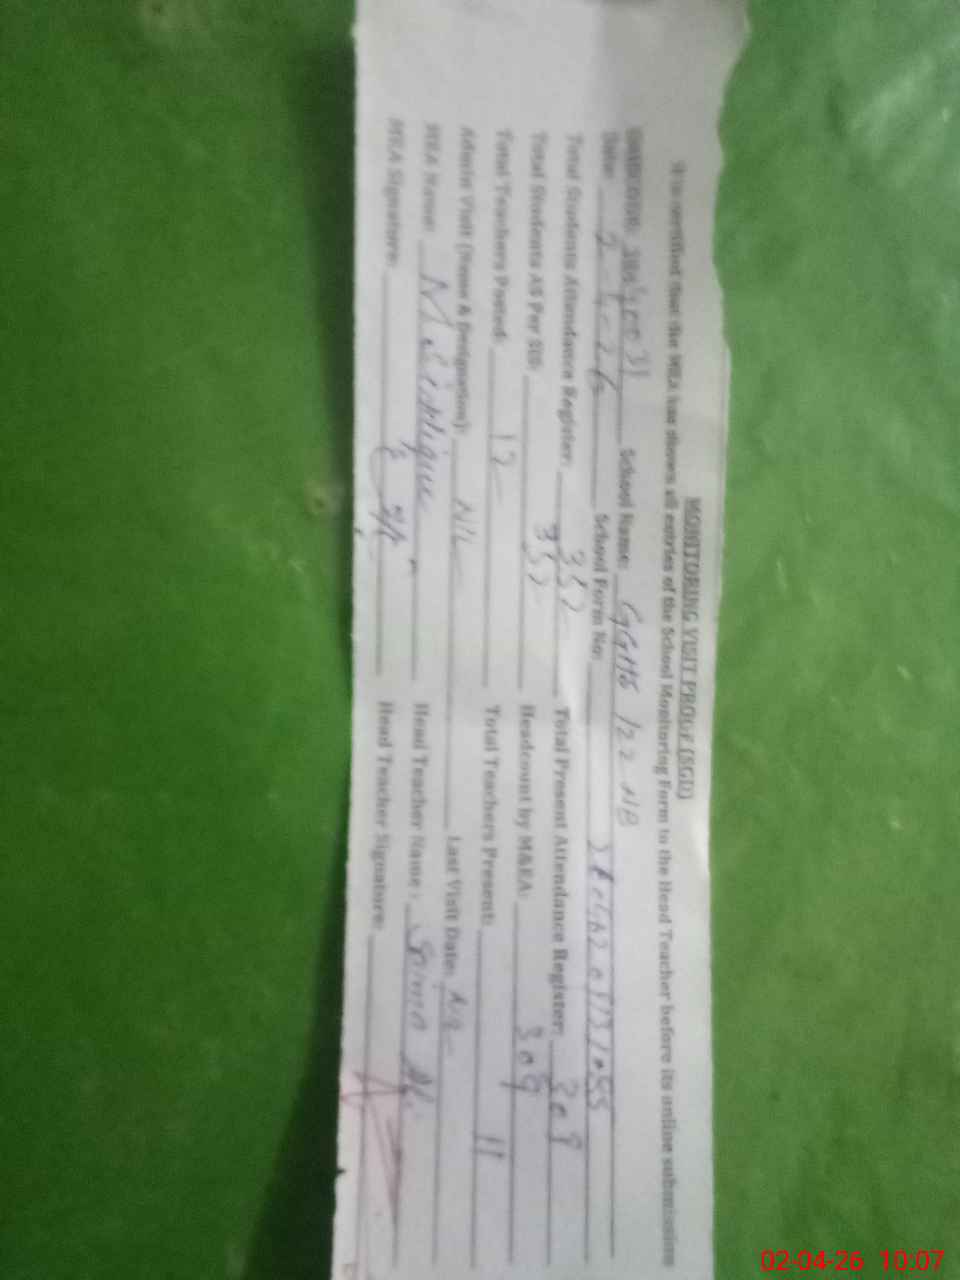 MONITORING VISIT PROOF (SGD)
It is certified that the MEA has shown all entries of the School Monitoring Form to the Head Teacher before its online submission
School Name: GGHS 122 NB
Date: 2-4-26 School Form No:
Total Students Attendance Register: 352 Total Present Attendance Register: 309
Total Students AS Per SIS: 352 Headcount by M&EA: 309
Total Teachers Posted: 12 Total Teachers Present: 11
Admin Visit (Name & Designation): NIL Last Visit Date:
MEA Name: M. Siddique Head Teacher Name: Saima
MEA Signature: Head Teacher Signature:
02-04-26 10:07